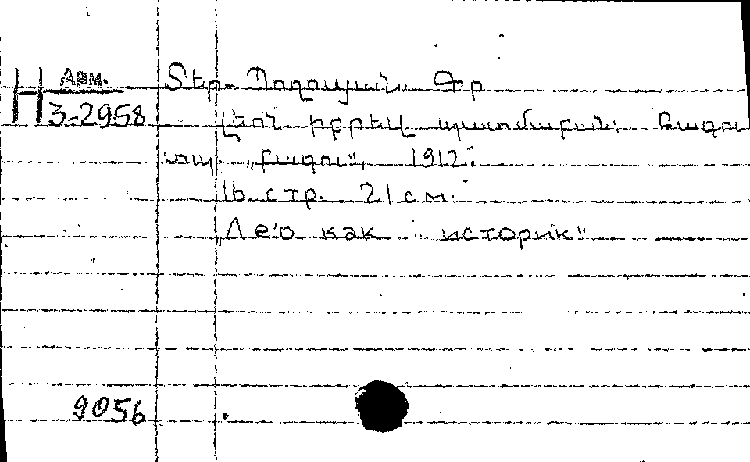 Арм.
Н 3-2958
Տեր-Պողոսյան Գր
Լեոն իբրեվ պատմաբան: Բագու
տպ „Բագու", 1912:
16 стр. 21 см.
„Лео как историк"
9056